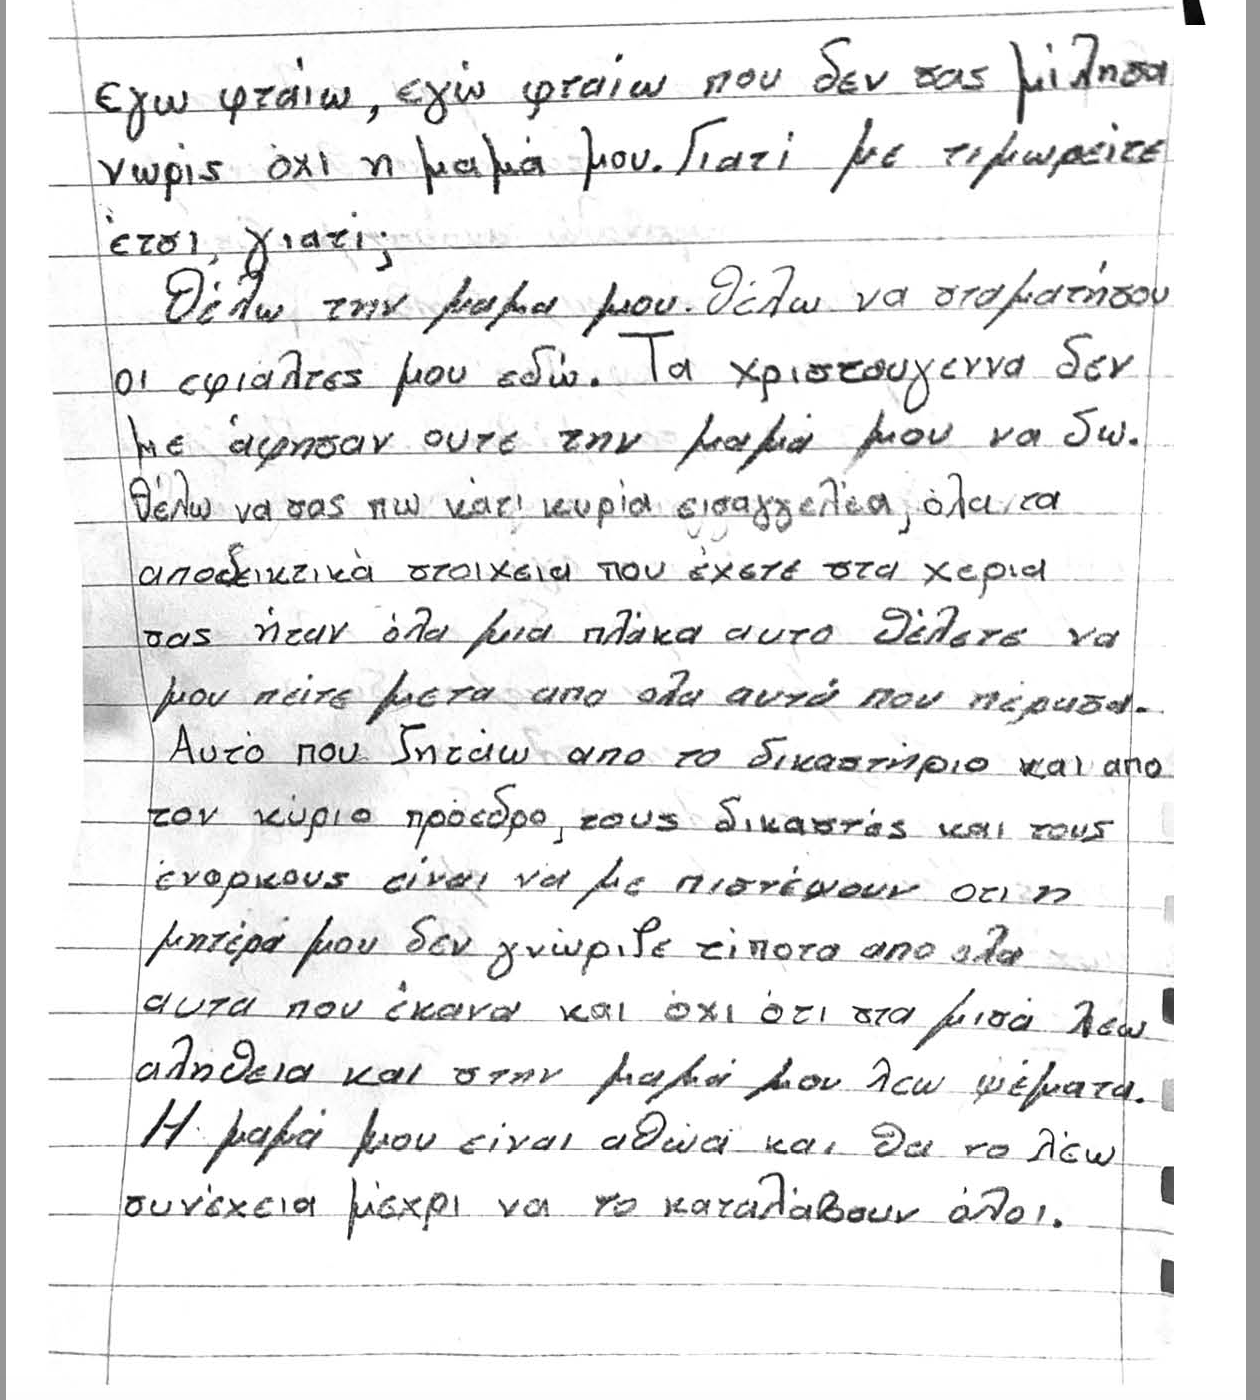 εγω φταίω, εγώ φταίω που δεν σας μίλησα
νωρίς όχι η μαμά μου. Γιατί με τιμωρείτε
έτσι, γιατί;
Θέλω την μαμα μου. Θέλω να σταματήσου
οι εφιάλτες μου εδώ. Τα χριστουγεννα δεν
με άφησαν ουτε την μαμά μου να δω.
Θέλω να σας πω κάτι κυρία εισαγγελέα, όλα τα
αποδεικτικά στοιχεια που έχετε στα χερια
σας ήταν όλα μια πλάκα αυτο θέλετε να
μου πείτε μετα απο ολα αυτά που πέρασα.
Αυτό που ζητάω απο το δικαστήριο και απο
τον κύριο πρόεδρο, τους δικαστές και τους
ένορκους είναι να με πιστέψουν οτι η
μητέρά μου δεν γνώριζε τίποτα απο ολα
αυτα που έκανα και όχι ότι στα μισά λέω
αλήθεια και στην μαμά μου λεω ψέματα.
Η μαμά μου είναι αθώα και θα το λέω
συνέχεια μέχρι να το καταλάβουν όλοι.